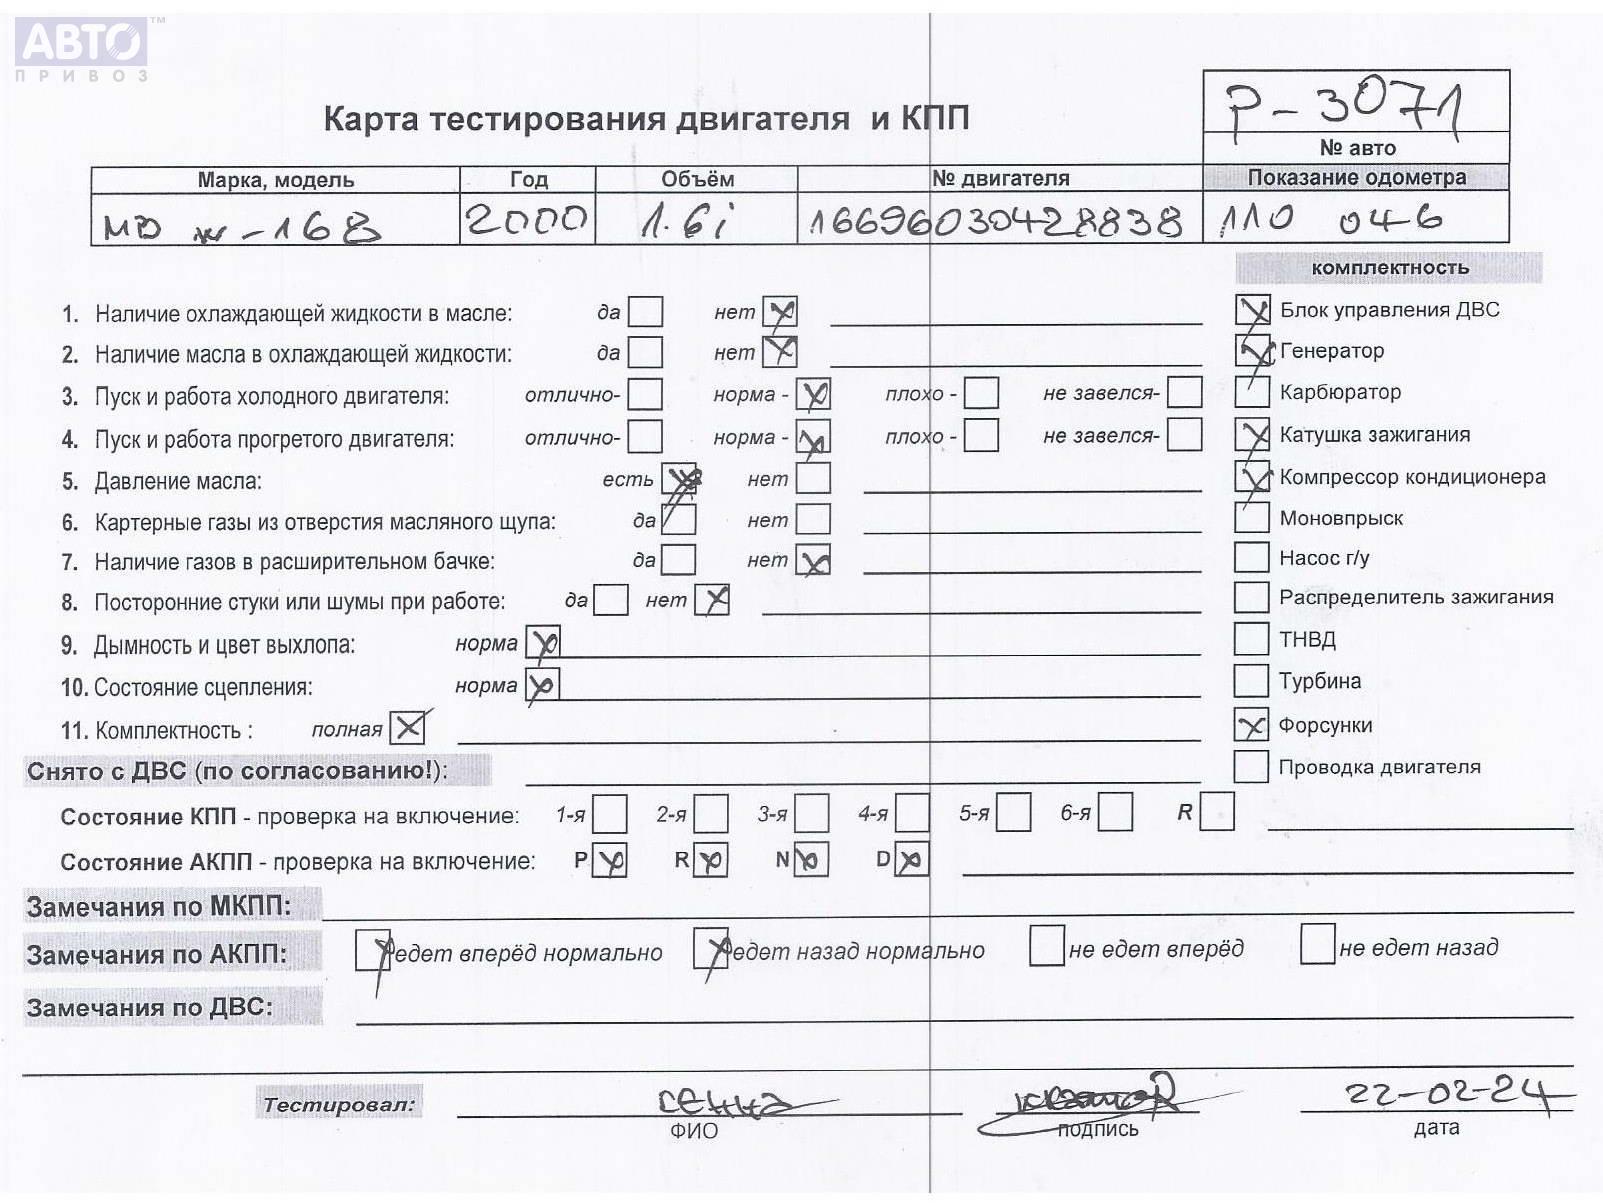 АВТО™
ПРИВОЗ
Р-3071
Карта тестирования двигателя и КПП
№ авто
Марка, модель Год Объём № двигателя Показание одометра
2000 1.6i 16696030428838 110 046
комплектность
1. Наличие охлаждающей жидкости в масле: да нет Блок управления ДВС
2. Наличие масла в охлаждающей жидкости: да нет Генератор
3. Пуск и работа холодного двигателя: отлично- норма - плохо - не завелся- Карбюратор
4. Пуск и работа прогретого двигателя: отлично- норма - плохо - не завелся- Катушка зажигания
5. Давление масла: есть нет Компрессор кондиционера
6. Картерные газы из отверстия масляного щупа: да нет Моновпрыск
7. Наличие газов в расширительном бачке: да нет Насос г/у
8. Посторонние стуки или шумы при работе: да нет Распределитель зажигания
9. Дымность и цвет выхлопа: норма ТНВД
10. Состояние сцепления: норма Турбина
11. Комплектность : полная Форсунки
Снято с ДВС (по согласованию!): Проводка двигателя
Состояние КПП - проверка на включение: 1-я 2-я 3-я 4-я 5-я 6-я R
Состояние АКПП - проверка на включение: P R N D
Замечания по МКПП:
Замечания по АКПП: едет вперёд нормально едет назад нормально не едет вперёд не едет назад
Замечания по ДВС:
Тестировал: 22-02-24
ФИО подпись дата